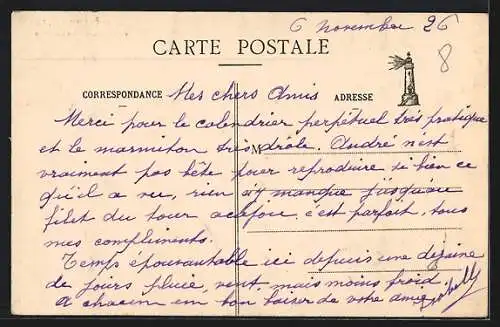 6 novembre 26
CARTE POSTALE
8
CORRESPONDANCE
ADRESSE
Mes chers Amis
Merci pour le calendrier perpétuel très pratique
et le marmiton très drôle. André n'est
M
vraiment pas bête pour reproduire si bien ce
qu'il a vu, rien n'y manque jusqu'au
filet du tour acajou, c'est parfait, tous
mes compliments.
Temps épouvantable ici depuis une dizaine
de jours pluie, vent, mais moins froid.
A chacun un bon baiser de votre amie